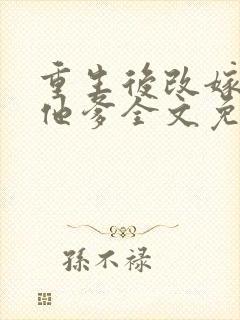 重生後改嫁
他爹全文免
孫不祿